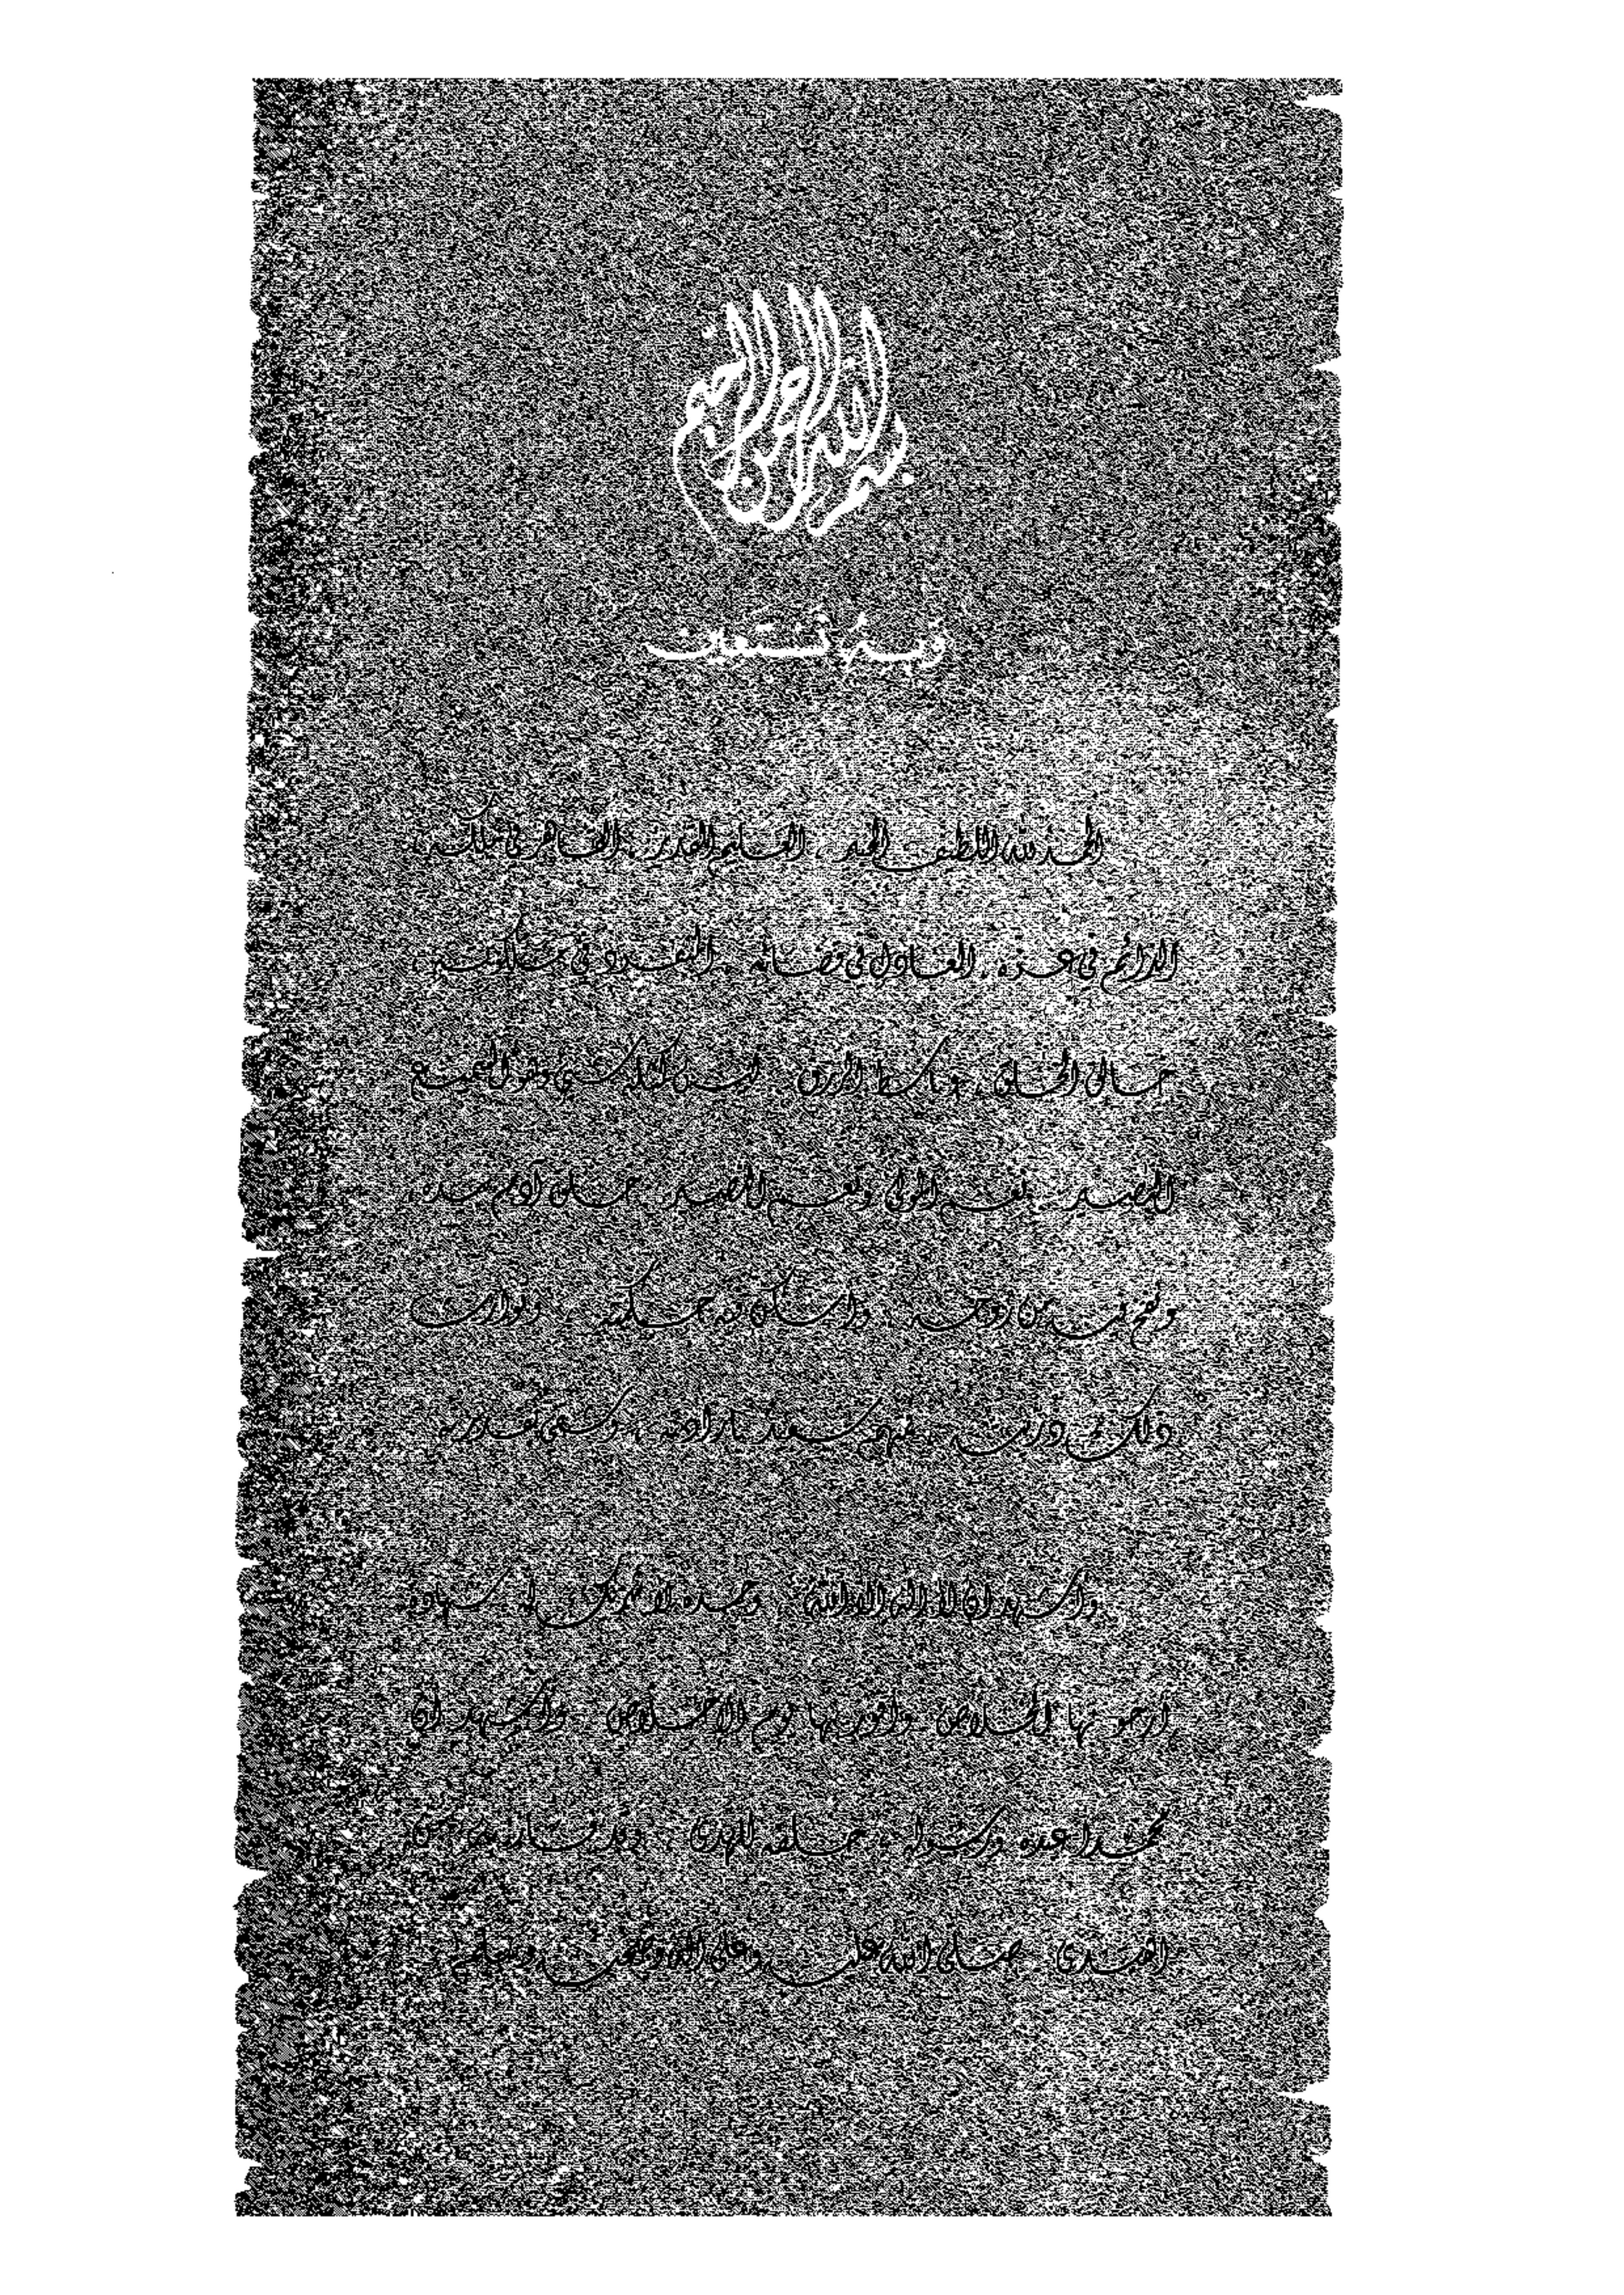 بسم الله الرحمن الرحيم
وبه نستعين
الحمد لله اللطيف الخبير ، العليم القدير ، القاهر في ملكه ،
الدائم في عزه ، العادل في قضائه ، المتفرد في ملكوته ،
خالق الخلق ، وباسط الرزق ، ليس كمثله شيء وهو السميع
البصير ، نعم المولى ونعم النصير ، خلق آدم بيده ،
ونفخ فيه من روحه ، وأسكن فيه حكمته ،
ذلك في ذريته ، فمنهم سعيد بإرادته ، وشقي بقدرته
وأشهد أن لا إله إلا الله ، وحده لا شريك له ، شهادة
أرجو بها الخلاص ، وأفوز بها يوم الإخلاص ، وأشهد أن
محمدا عبده ورسوله ، للهدى ، وقد فاز من
اهتدى ، صلى الله عليه وعلى آله وصحبه وسلم